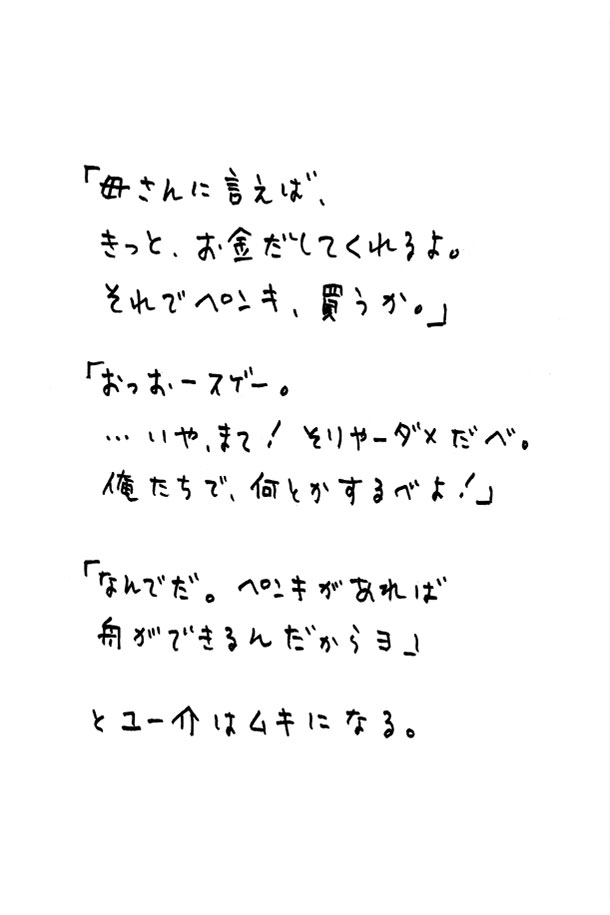 「母さんに言えば、
きっと、お金だしてくれるよ。
それでペンキ、買うか。」
「おっおースゲー。
…いや、まて！そりゃーダメだべ。
俺たちで、何とかするべよ！」
「なんでだ。ペンキがあれば
舟ができるんだからヨ」
とユー介はムキになる。